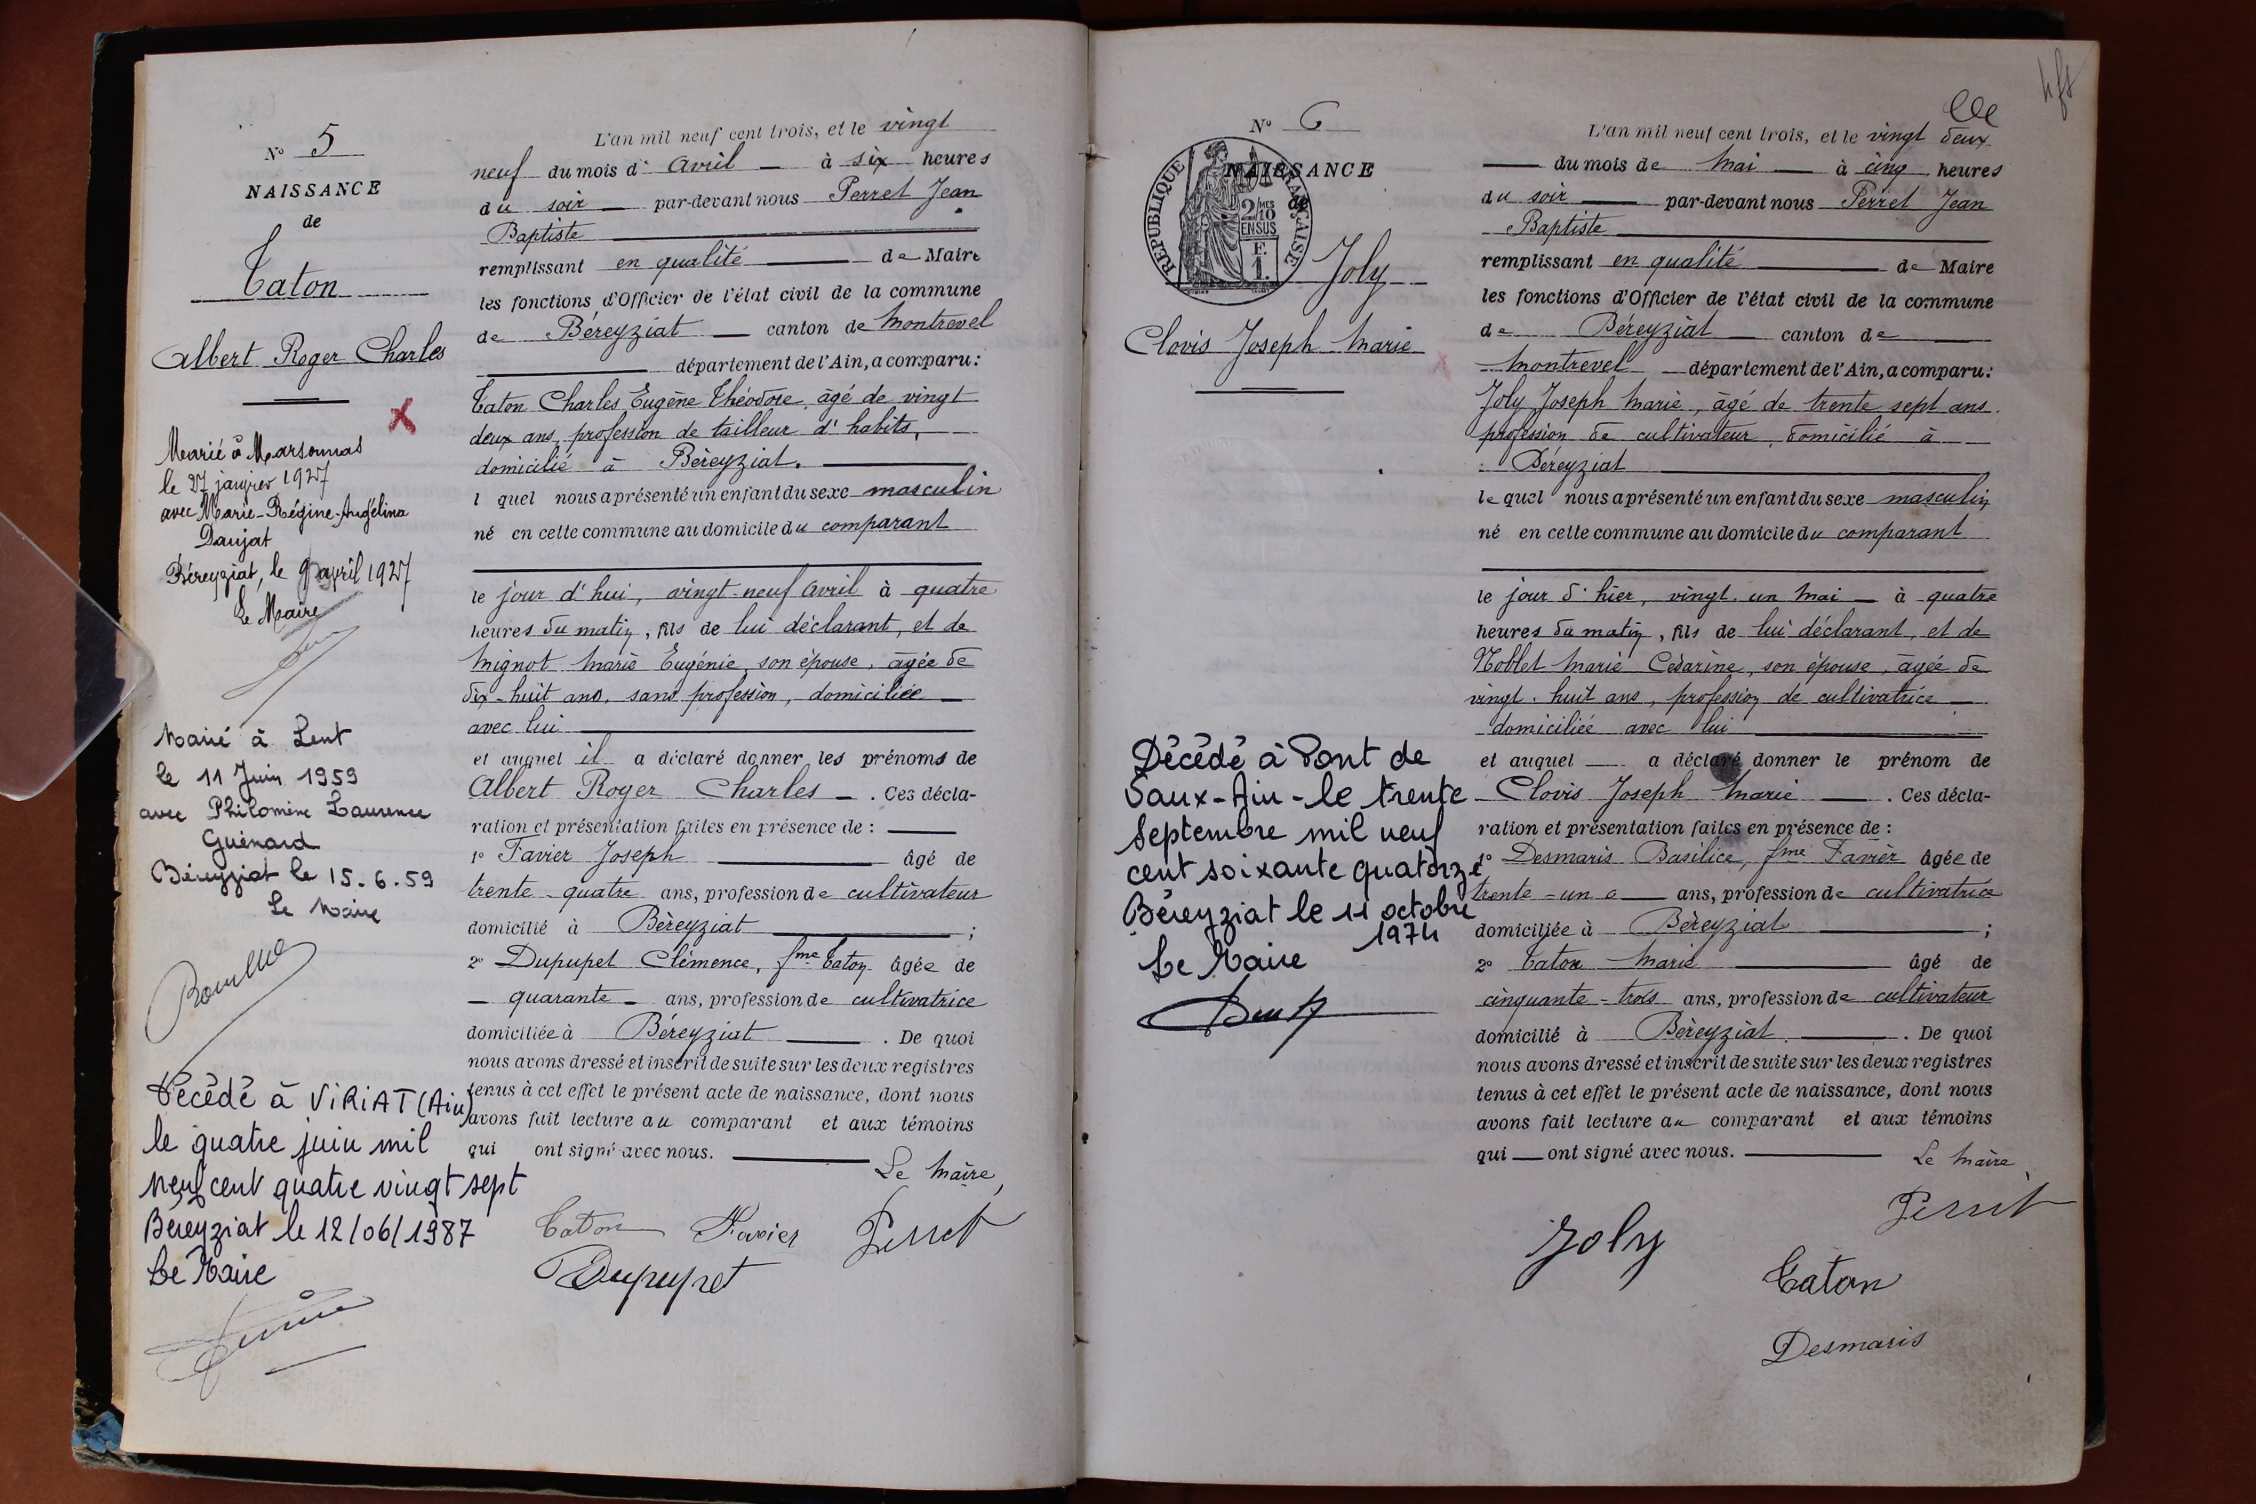 N° 5
NAISSANCE
de
Taton
Albert Roger Charles
Marié à Marsonnas
le 27 janvier 1927
avec Marie-Régine-Angélina
Daujat
Béreyziat, le 9 avril 1927
Le Maire
Marié à Lent
le 11 Juin 1959
avec Philomène Laurence
Guénard
Béreyziat le 15.6.59
Le Maire
Décédé à VIRIAT (Ain)
le quatre juin mil
neuf cent quatre vingt sept
Béreyziat le 12/06/1987
Le Maire
L'an mil neuf cent trois, et le vingt
neuf du mois d' avril à six heures
du soir par-devant nous Perret Jean
Baptiste
remplissant en qualité de Maire
les fonctions d'Officier de l'état civil de la commune
de Béreyziat canton de Montrevel
département de l'Ain, a comparu:
Taton Charles Eugène Théodore, âgé de vingt
deux ans, profession de tailleur d'habits,
domicilié à Béreyziat.
l quel nous a présenté un enfant du sexe masculin
né en cette commune au domicile du comparant
le jour d'hui, vingt-neuf avril à quatre
heures du matin, fils de lui déclarant, et de
Mignot Marie Eugénie, son épouse, âgée de
dix-huit ans, sans profession, domiciliée
avec lui
et auquel il a déclaré donner les prénoms de
Albert Roger Charles. Ces décla-
ration et présentation faites en présence de:
1° Favier Joseph âgé de
trente-quatre ans, profession de cultivateur
domicilié à Béreyziat;
2° Dupupet Clémence, fme Taton âgée de
quarante ans, profession de cultivatrice
domiciliée à Béreyziat. De quoi
nous avons dressé et inscrit de suite sur les deux registres
tenus à cet effet le présent acte de naissance, dont nous
avons fait lecture au comparant et aux témoins
qui ont signé avec nous.
Le Maire,
Taton Favier Perret
Dupupet
N° 6
NAISSANCE
de
RÉPUBLIQUE FRANÇAISE
2/10 MES
EN SUS
F.
1.
Joly
Clovis Joseph Marie
Décédé à Pont de
Vaux-Ain-le trente
Septembre mil neuf
cent soixante quatorze
Béreyziat le 11 octobre
1974
Le Maire
L'an mil neuf cent trois, et le vingt deux
du mois de Mai à cinq heures
du soir par-devant nous Perret Jean
Baptiste
remplissant en qualité de Maire
les fonctions d'Officier de l'état civil de la commune
de Béreyziat canton de
Montrevel département de l'Ain, a comparu:
Joly Joseph Marie, âgé de trente sept ans.
profession de cultivateur, domicilié à
Béreyziat
lequel nous a présenté un enfant du sexe masculin
né en cette commune au domicile du comparant
le jour d'hier, vingt-un Mai à quatre
heures du matin, fils de lui déclarant, et de
Noblet Marie Césarine, son épouse, âgée de
vingt-huit ans, profession de cultivatrice
domiciliée avec lui
et auquel a déclaré donner le prénom de
Clovis Joseph Marie. Ces décla-
ration et présentation faites en présence de:
1° Desmaris Basilice, fme Favier âgée de
trente-un ans, profession de cultivatrice
domiciliée à Béreyziat;
2° Taton Marie âgé de
cinquante-trois ans, profession de cultivateur
domicilié à Béreyziat. De quoi
nous avons dressé et inscrit de suite sur les deux registres
tenus à cet effet le présent acte de naissance, dont nous
avons fait lecture au comparant et aux témoins
qui ont signé avec nous.
Le Maire,
Perret
Joly
Taton
Desmaris